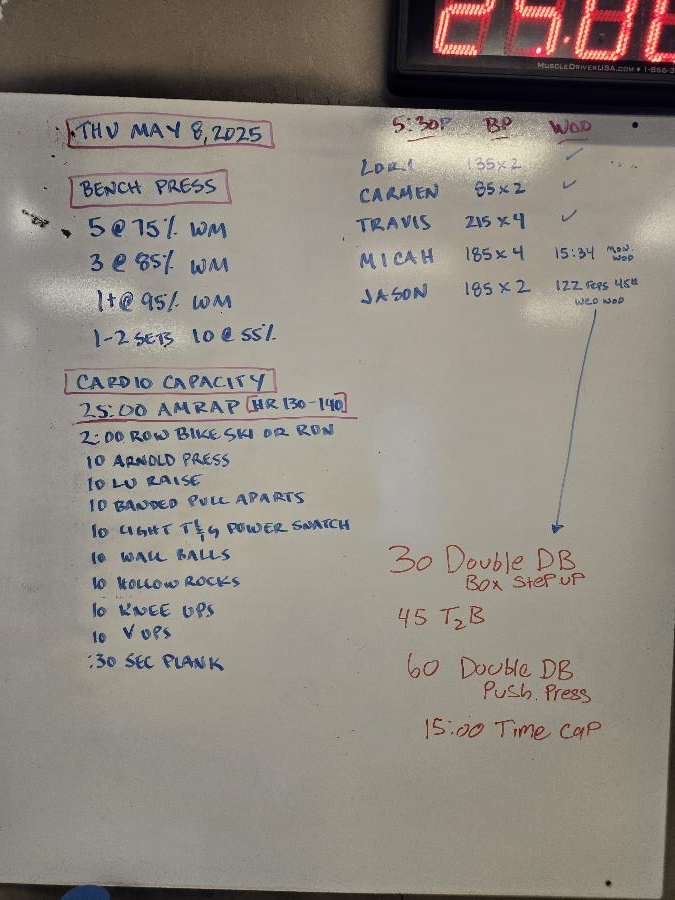 MUSCLEDRIVERUSA.COM • 1-866-3
THU MAY 8, 2025
BENCH PRESS
5 @ 75% WM
3 @ 85% WM
1+ @ 95% WM
1-2 SETS 10 @ 55%
CARDIO CAPACITY
25:00 AMRAP HR 130-140
2:00 ROW BIKE SKI OR RUN
10 ARNOLD PRESS
10 LU RAISE
10 BANDED PULL APARTS
10 LIGHT T&G POWER SNATCH
10 WALL BALLS
10 HOLLOW ROCKS
10 KNEE UPS
10 V UPS
:30 SEC PLANK
5:30P BP WOD
LORI 135 x 2 ✓
CARMEN 85 x 2 ✓
TRAVIS 215 x 4 ✓
MICAH 185 x 4 15:34 MON. WOD
JASON 185 x 2 122 reps 45#
WED WOD
30 Double DB
Box Step UP
45 T2B
60 Double DB
Push Press
15:00 Time Cap